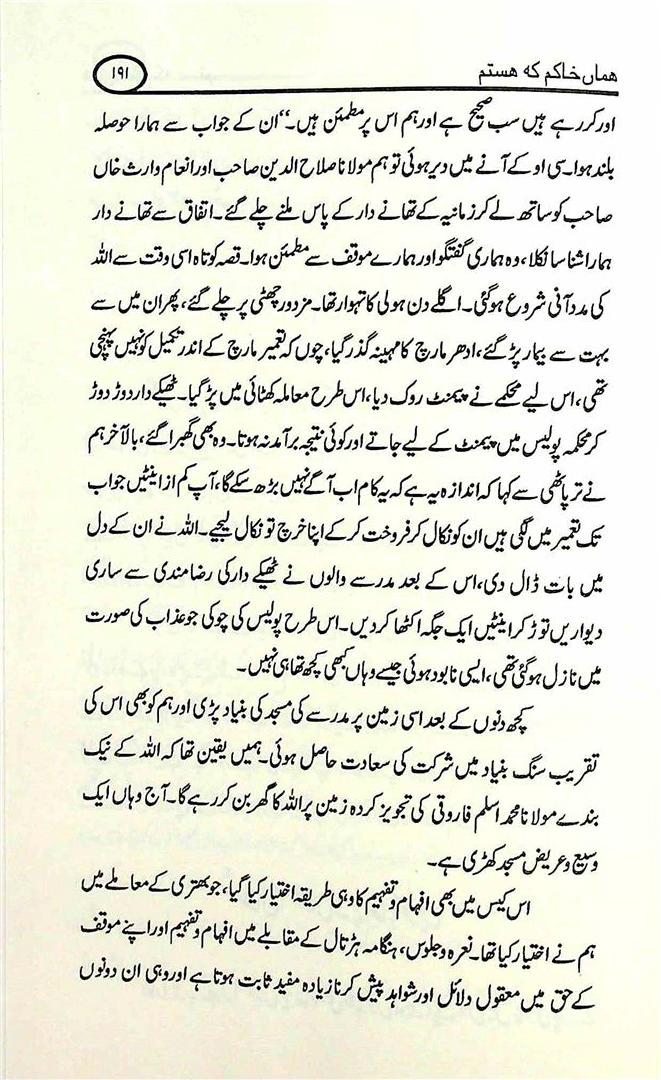 ھماں خاکم کہ ھستم
۱۹۱
اور کررہے ہیں سب صحیح ہے اور ہم اس پر مطمئن ہیں۔“ان کے جواب سے ہمارا حوصلہ
بلند ہوا۔ سی او کے آنے میں دیر ہوئی تو ہم مولانا صلاح الدین صاحب اور انعام وارث خاں
صاحب کو ساتھ لے کر زمانیہ کے تھانے دار کے پاس ملنے چلے گئے۔ اتفاق سے تھانے دار
ہمارا شناسا نکلا، وہ ہماری گفتگو اور ہمارے موقف سے مطمئن ہوا۔ قصہ کوتاہ اسی وقت سے اللہ
کی مدد آنی شروع ہوگئی۔ اگلے دن ہولی کا تہوار تھا۔ مزدور چھٹی پر چلے گئے، پھر ان میں سے
بہت سے بیمار پڑ گئے، ادھر مارچ کا مہینہ گذر گیا، چوں کہ تعمیر مارچ کے اندر تکمیل کو نہیں پہنچی
تھی، اس لیے محکمے نے پیمنٹ روک دیا، اس طرح معاملہ کھٹائی میں پڑ گیا۔ ٹھیکے دار دوڑ دوڑ
کر محکمہ پولیس میں پیمنٹ کے لیے جاتے اور کوئی نتیجہ برآمد نہ ہوتا۔ وہ بھی گھبرا گئے، بالآخر ہم
نے ترپاٹھی سے کہا کہ اندازہ یہ ہے کہ یہ کام اب آگے نہیں بڑھ سکے گا، آپ کم از اینٹیں جو اب
تک تعمیر میں لگی ہیں ان کو نکال کر فروخت کرکے اپنا خرچ تو نکال لیجیے۔ اللہ نے ان کے دل
میں بات ڈال دی، اس کے بعد مدرسے والوں نے ٹھیکے دار کی رضامندی سے ساری
دیواریں توڑ کر اینٹیں ایک جگہ اکٹھا کردیں۔ اس طرح پولیس کی چوکی جو عذاب کی صورت
میں نازل ہوگئی تھی، ایسی نابود ہوئی جیسے وہاں کبھی کچھ تھا ہی نہیں۔
کچھ دنوں کے بعد اسی زمین پر مدرسے کی مسجد کی بنیاد پڑی اور ہم کو بھی اس کی
تقریب سنگ بنیاد میں شرکت کی سعادت حاصل ہوئی۔ ہمیں یقین تھا کہ اللہ کے نیک
بندے مولانا محمد اسلم فاروقی کی تجویز کردہ زمین پر اللہ کا گھر بن کر رہے گا۔ آج وہاں ایک
وسیع و عریض مسجد کھڑی ہے۔
اس کیس میں بھی افہام و تفہیم کا وہی طریقہ اختیار کیا گیا، جو بھتری کے معاملے میں
ہم نے اختیار کیا تھا۔ نعرہ و جلوس، ہنگامہ ہڑتال کے مقابلے میں افہام و تفہیم اور اپنے موقف
کے حق میں معقول دلائل اور شواہد پیش کرنا زیادہ مفید ثابت ہوتا ہے اور وہی ان دونوں